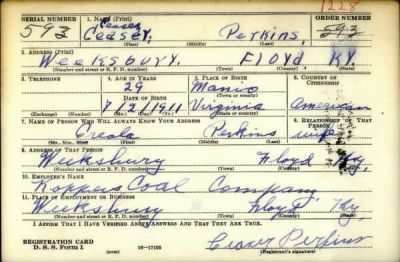 1228
SERIAL NUMBER 1. NAME (Print) ORDER NUMBER
593 Ceaser Perkins 593
(First) (Middle) (Last)
2. ADDRESS (Print)
Weeksbury. FLOYD, KY.
(Number and street or R. F. D. number) (Town) (County) (State)
3. TELEPHONE 4. AGE IN YEARS 5. PLACE OF BIRTH 6. COUNTRY OF CITIZENSHIP
29
(Town or county)
DATE OF BIRTH
7/2/1911 Virginia American
(Exchange) (Number) (Mo.) (Day) (Yr.) (State or country)
7. NAME OF PERSON WHO WILL ALWAYS KNOW YOUR ADDRESS 8. RELATIONSHIP OF THAT PERSON
Perkins wife
(Mr., Mrs., Miss) (First) (Middle) (Last)
9. ADDRESS OF THAT PERSON
Weeksbury Floyd Ky.
(Number and street or R. F. D. number) (Town) (County) (State)
10. EMPLOYER'S NAME
Koppers Coal Company
11. PLACE OF EMPLOYMENT OR BUSINESS
Weeksbury Floyd Ky.
(Number and street or R. F. D. number) (Town) (County) (State)
I AFFIRM THAT I HAVE VERIFIED ABOVE ANSWERS AND THAT THEY ARE TRUE.
REGISTRATION CARD
D. S. S. Form 1 16-17105 Perkins
(Registrant's signature)